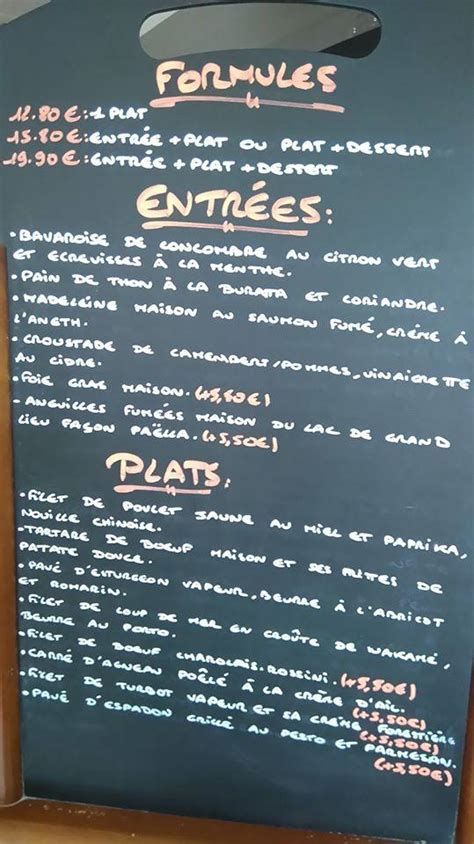 FORMULES
12.80€: 1 PLAT
15.80€: ENTRÉE + PLAT OU PLAT + DESSERT
19.90€: ENTRÉE + PLAT + DESSERT
ENTRÉES:
• BAVAROISE DE CONCOMBRE AU CITRON VERT
ET ECREVISSES À LA MENTHE.
• PAIN DE THON À LA BURATA ET CORIANDRE.
• MADELEINE MAISON AU SAUMON FUMÉ, CRÈME À
L'ANETH.
• CROUSTADE DE CAMEMBERT/POMMES, VINAIGRETTE
AU CIDRE.
• FOIE GRAS MAISON. (+5,50€)
- ANGUILLES FUMÉES MAISON DU LAC DE GRAND
LIEU FAÇON PAËLLA. (+5,50€)
PLATS:
• FILET DE POULET JAUNE AU MIEL ET PAPRIKA,
NOUILLE CHINOISE.
- TARTARE DE BOEUF MAISON ET SES FRITES DE
PATATE DOUCE.
• PAVÉ D'ESTURGEON VAPEUR, BEURRE À L'ABRICOT
ET ROMARIN.
• FILET DE LOUP DE MER EN CROÛTE DE WAKAMÉ,
BEURRE AU PORTO.
• FILET DE BOEUF CHAROLAIS ROSSINI. (+5,50€)
- CARRÉ D'AGNEAU POÊLÉ À LA CRÈME D'AIL. (+5,50€)
• FILET DE TURBOT VAPEUR ET SA CRÈME FORESTIÈRE (+5,50€)
• PAVÉ D'ESPADON GRILLÉ AU PESTO ET PARMESAN.
(+5,50€)